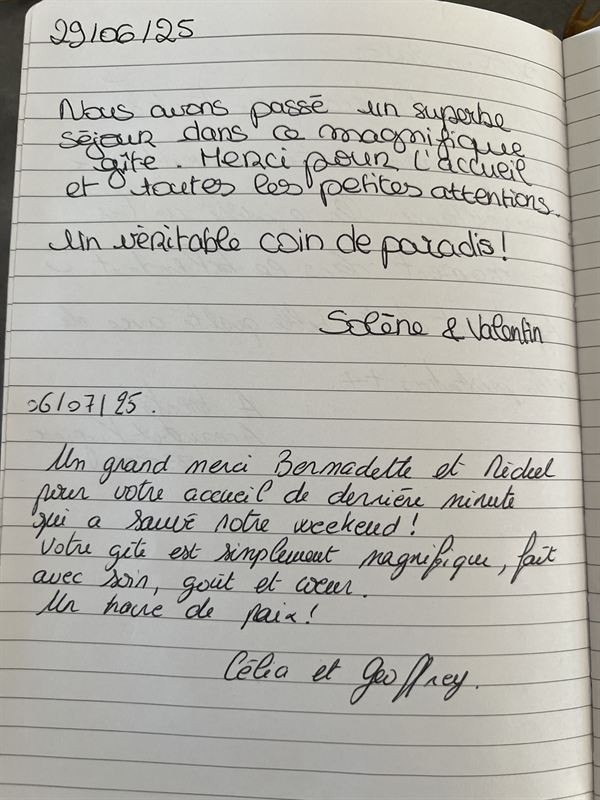 29/06/25
Nous avons passé un superbe
séjour dans ce magnifique
gîte. Merci pour l'accueil
et toutes les petites attentions.
Un véritable coin de paradis!
Solène & Valentin
06/07/25.
Un grand merci Bernadette et Michel
pour votre accueil de dernière minute
qui a sauvé notre weekend!
Votre gîte est simplement magnifique, fait
avec soin, goût et cœur.
Un havre de paix!
Célia et Geoffrey.